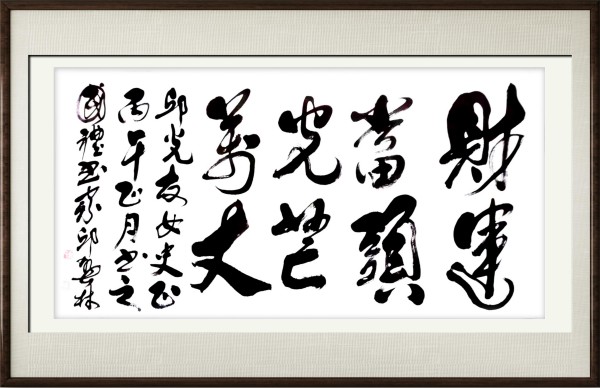 財運
當頭
光芒
萬丈
邱光友女史正
丙午正月書之
國禮書家邱勁林